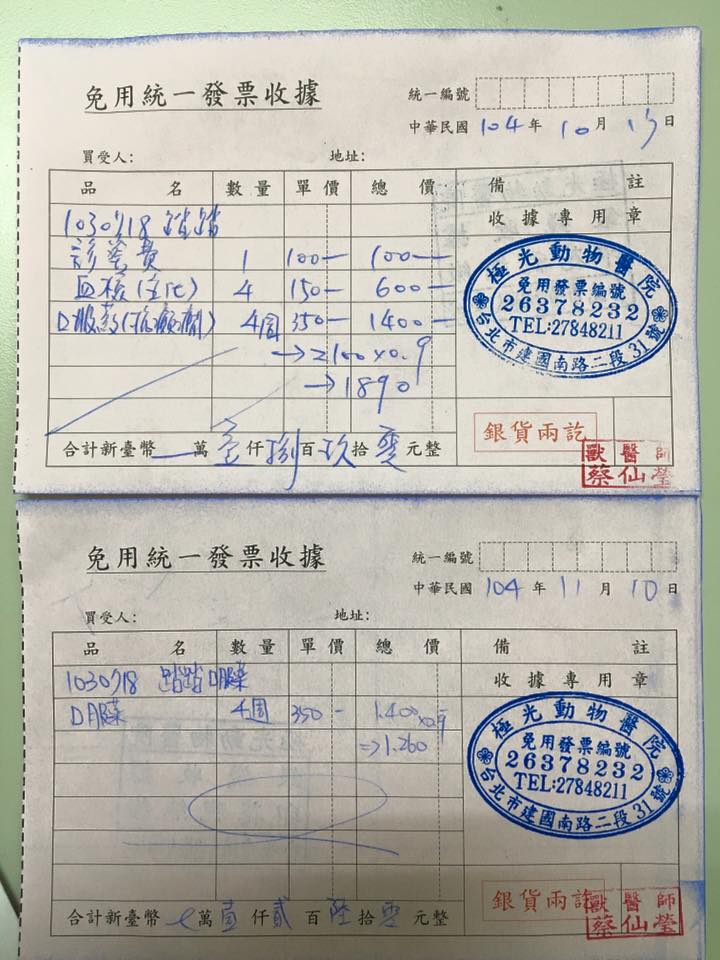 免用統一發票收據
統一編號
中華民國 104 年 10 月 13 日
買受人： 地址：
品 名 數量 單價 總價 備 註
收據專用章
1030718 踏踏
診察費 1 100— 100—
血檢(生化) 4 150— 600—
口服藥(抗癲癇) 4週 350— 1400—
→2100×0.9
→1890
極光動物醫院
免用發票編號
26378232
TEL:27848211
台北市建國南路二段31號
銀貨兩訖
合計新臺幣 萬 壹 仟 捌 百 玖 拾 零 元整
獸醫師
蔡仙瑩
免用統一發票收據
統一編號
中華民國 104 年 11 月 10 日
買受人： 地址：
品 名 數量 單價 總價 備 註
收據專用章
1030718 踏踏 口服藥
口服藥 4週 350— 1.400×0.9
=>1.260
極光動物醫院
免用發票編號
26378232
TEL:27848211
台北市建國南路二段31號
銀貨兩訖
合計新臺幣 萬 壹 仟 貳 百 陸 拾 零 元整
獸醫師
蔡仙瑩